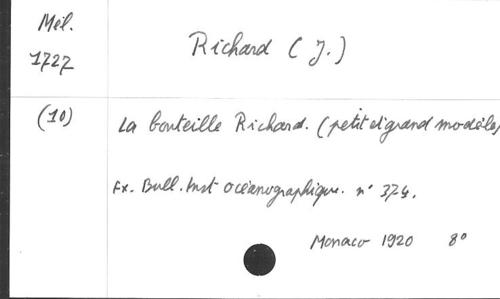 Mél.
1727
Richard (J.)
(10)
La bouteille Richard. (petit et grand modèle)
Ex. Bull. Inst océanographique. n° 374.
Monaco 1920 8°